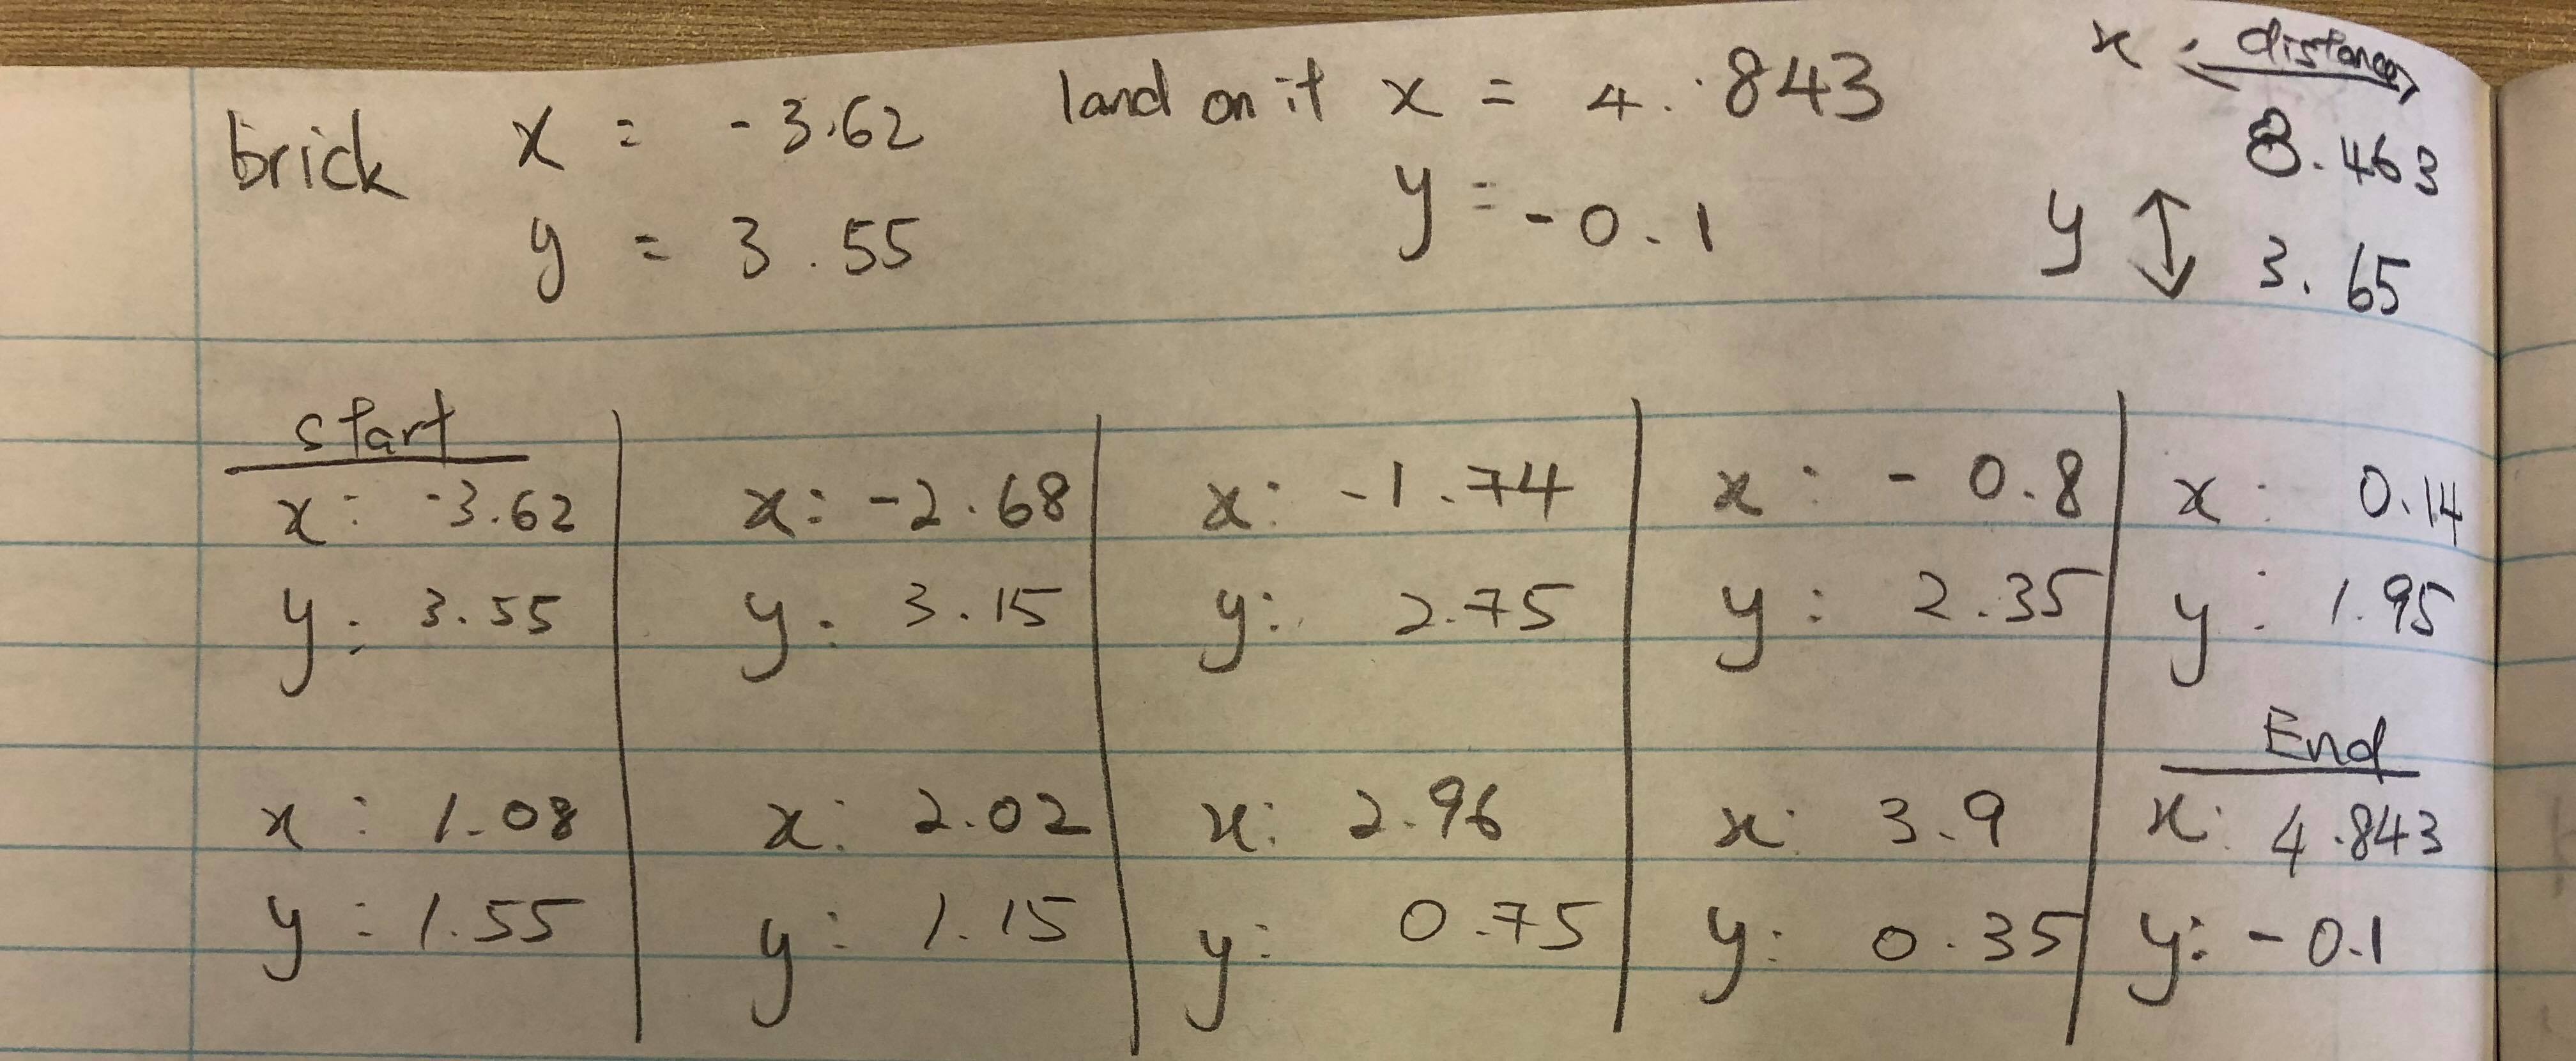 brick x = -3.62 land on it x = 4.843 x : distance
y = 3.55 y = -0.1 8.463
y 3.65
start
x: -3.62 x: -2.68 x: -1.74 x: -0.8 x: 0.14
y: 3.55 y: 3.15 y: 2.75 y: 2.35 y: 1.95
End
x: 1.08 x: 2.02 x: 2.96 x: 3.9 x: 4.843
y: 1.55 y: 1.15 y: 0.75 y: 0.35 y: -0.1